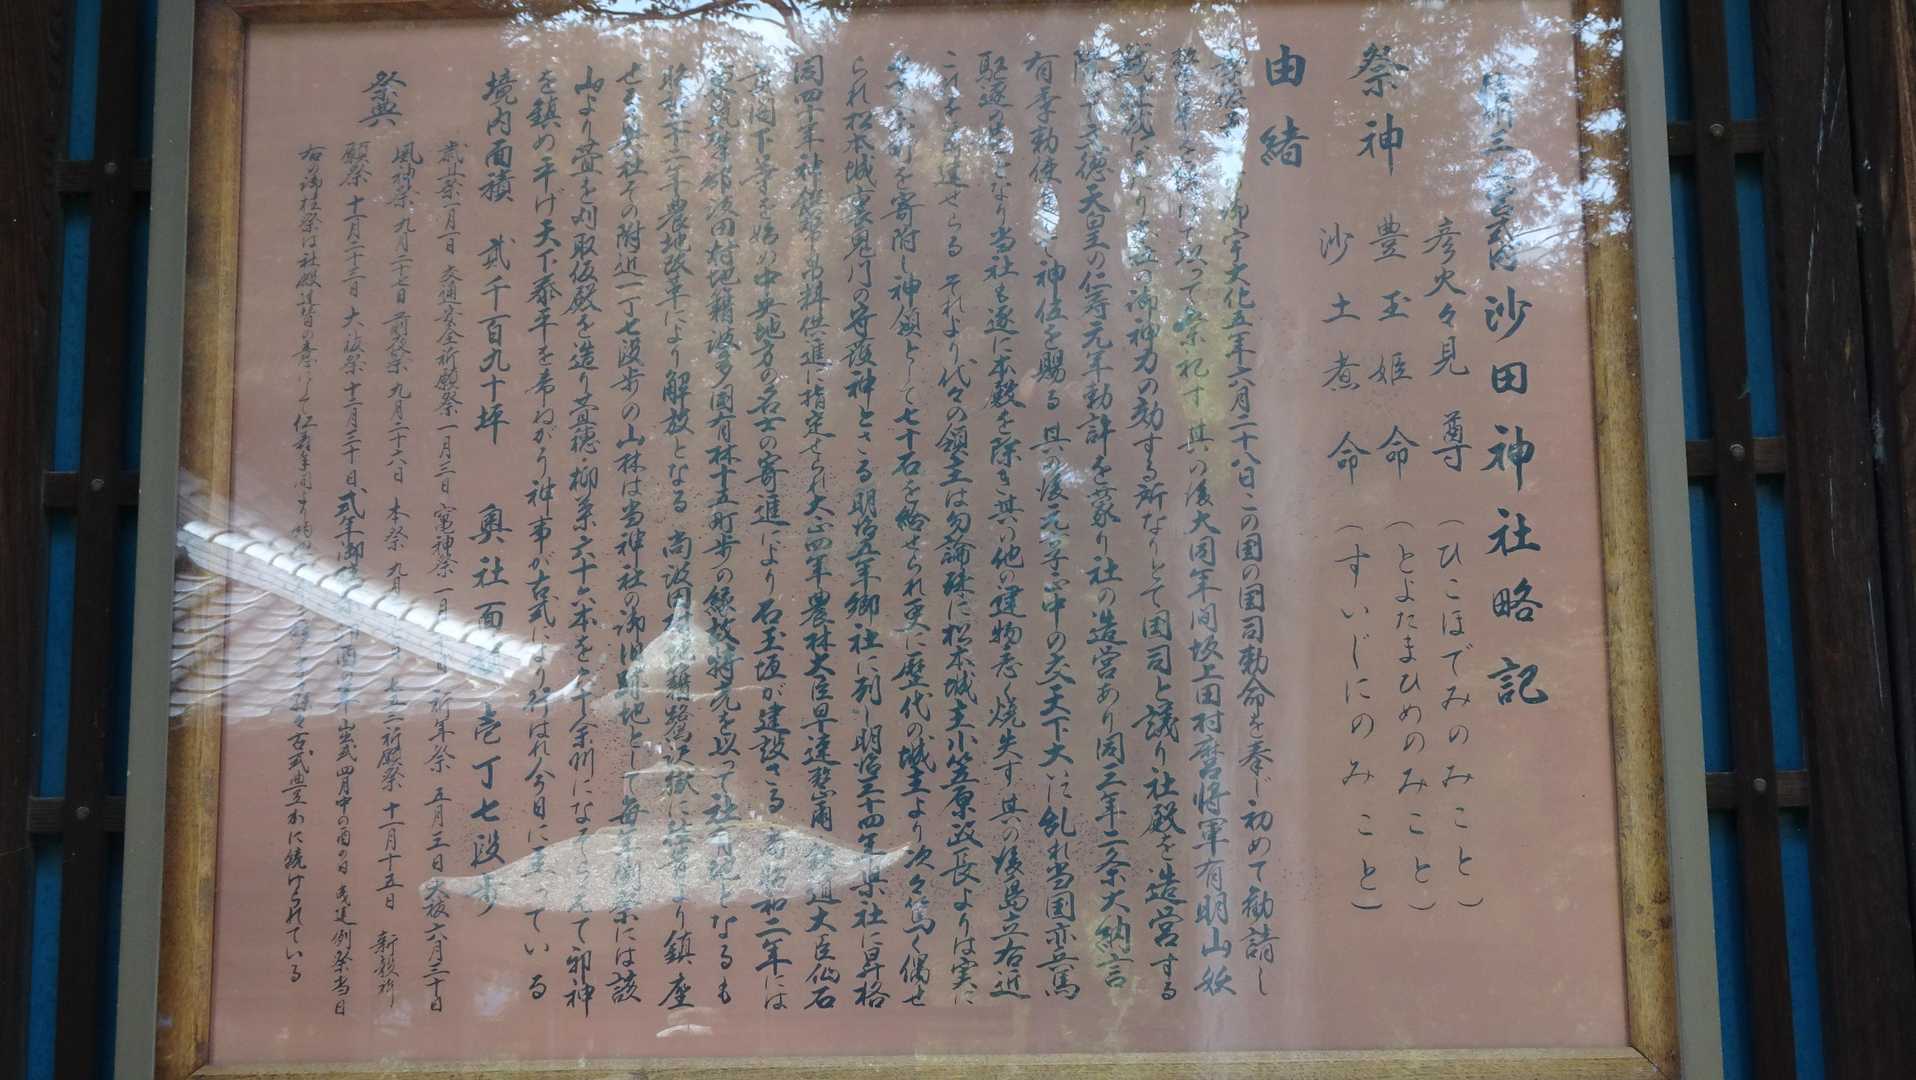 信濃三之宮式内沙田神社略記
祭神 彦火々見尊(ひこほでみのみこと)
豊玉姫命(とよたまひめのみこと)
沙土煮命(すいじにのみこと)
由緒
御宇大化五年六月二十八日この国の国司勅命を奉じ初めて勧請し
以って崇祀す 其の後大同年間坂上田村麿将軍有明山妖
の御神力の効する所なりとて国司と議り社殿を造営する
文徳天皇の仁寿元年勅許を蒙り社の造営あり同三年二条大納言
有季勅使 神位を賜る 其の後元享正中の交天下大いに乱れ当国亦兵馬
駆逐の なり当社も遂に本殿を除き其の他の建物悉く焼失す 其の後島立右近
せらる それより代々の領主は勿論殊に松本城主小笠原政長よりは実に
を寄附し神領として七十石を給せられ更に歴代の城主より次々篤く偶せ
られ松本城裏鬼門の守護神とさる明治五年郷社に列し明治三十四年県社に昇格
同四十年神饌幣帛料供進に指定せられ大正四年農林大臣早速整爾 鉄道大臣仙石
貢閣下等を始め中央地方の名士の寄進により石玉垣が建設さる 昭和二年には
東筑摩郡波田村地籍波多国有林十五町歩の縁故特売を以って社有地となるも
昭和二十二年農地改革により解放となる 尚波田村地籍鷺沢嶽に 鎮座
せる奥社その附近一丁七段歩の山林は当神社の御旧跡地として毎年例祭には該
山より萱を刈取仮殿を造り萱穂・柳葉六十六本を六十余州になぞらえて邪神
を鎮め平げ天下泰平を希ねがう神事が古式により行はれ今日に至っている
境内面積 弐千一百九十坪 奥社面積 壱丁七段歩
祭典 歳旦祭一月一日 交通安全祈願祭 一月三日 祈年祭 五月三日 大祓 六月三十日
風神祭 九月二十七日 前夜祭 九月二十六日 本祭 九月 七五三祈願祭 十一月十五日 新穀祈
願祭 十一月二十三日 大祓祭 十二月三十日 式年御 四月中の酉の日 例祭当日
右の御柱祭は社殿造替の 仁寿年間より 古式豊かに続けられている